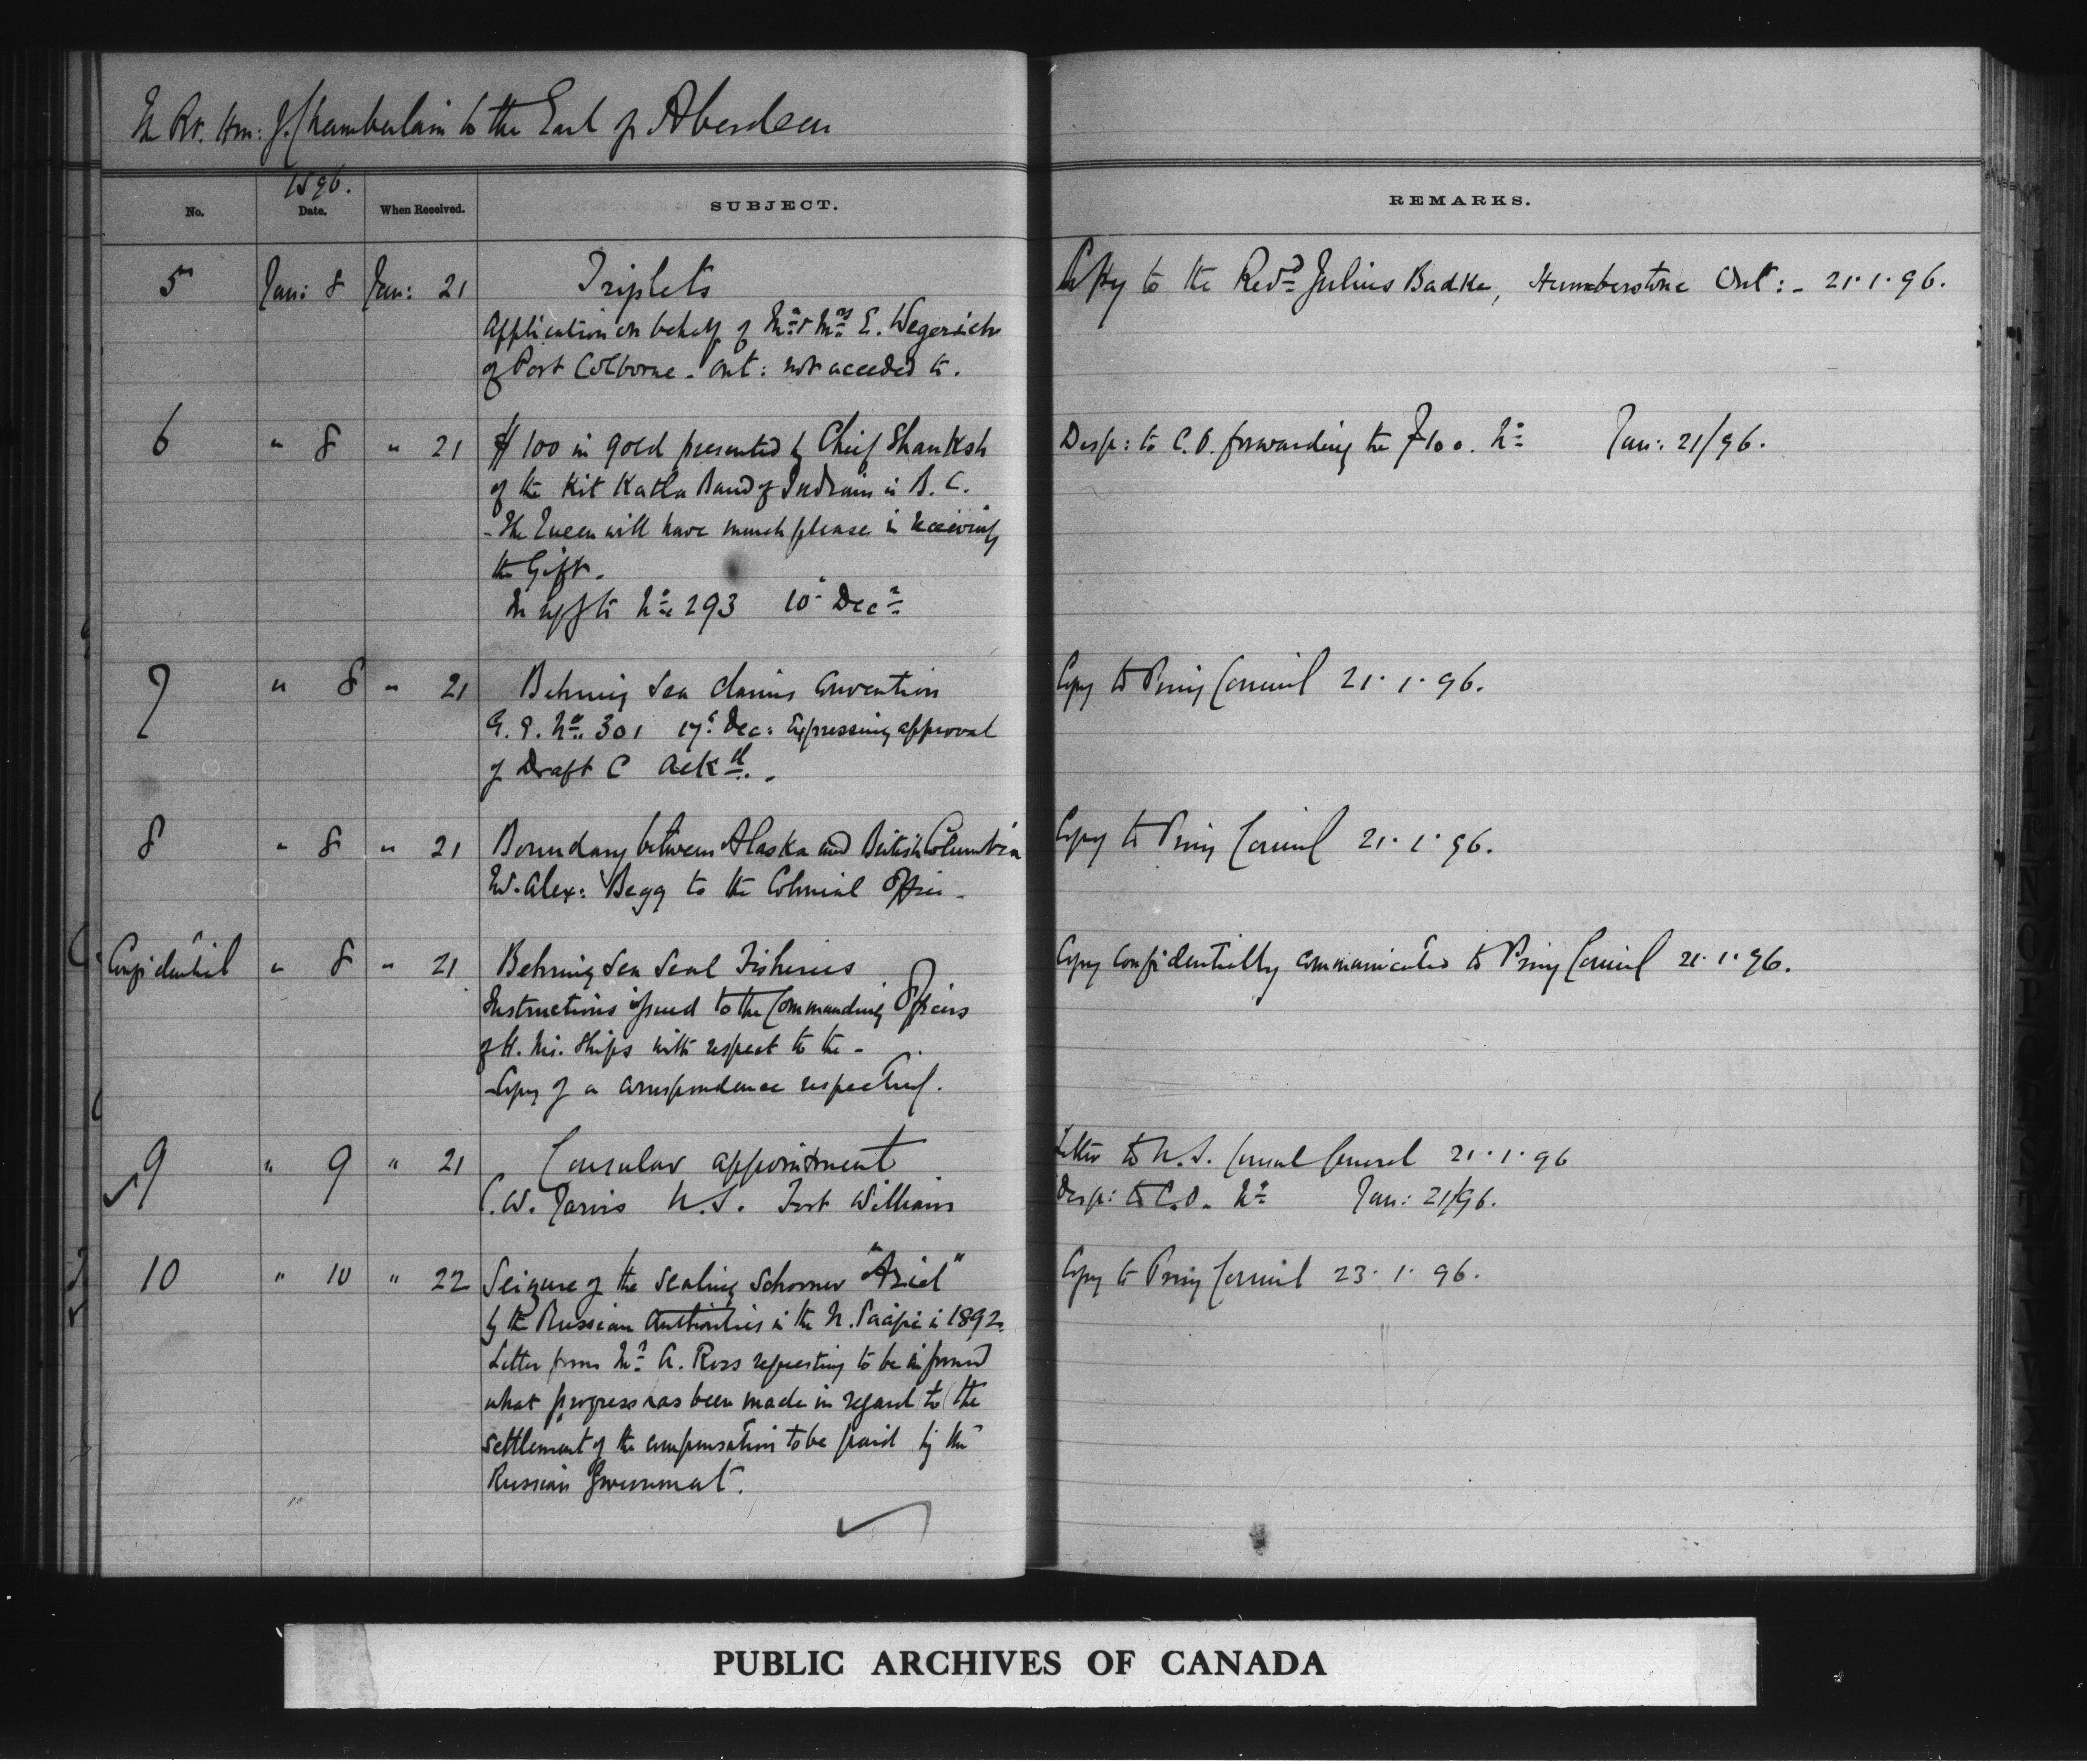 The Rt. Hon: J. Chamberlain to the Earl of Aberdeen
1896.
No. Date. When Received. SUBJECT. REMARKS.
5 Jan: 8 Jan: 21 Triplets Copy to the Revd Julius Badke, Humberstone Ont:- 21.1.96.
Application on behalf of Mr & Mrs E. Wegerich
of Port Colborne - Ont: not acceded to.
6 " 8 " 21 $100 in gold presented by Chief Shanksh Desp: to C.O. forwarding the $100. No Jan: 21/96.
of the Kit Katla Band of Indians in B.C.
- The Queen will have much please in receiving
the Gift.
In reply to No 293 10 Decr
7 " 8 " 21 Behring Sea Claims Convention Copy to Privy Council 21.1.96.
G.G. No. 301 17 Dec: Expressing approval
of Draft C Ackd. -
8 " 8 " 21 Boundary between Alaska and British Columbia Copy to Privy Council 21.1.96.
Mr. Alex: Begg to the Colonial Office -
Confidential " 8 " 21 Behring Sea Seal Fisheries Copy confidentially communicated to Privy Council 21.1.96.
Instructions issued to the Commanding Officers
of H. M. Ships with respect to the -
- Copy of a correspondence respecting.
9 " 9 " 21 Consular appointment Letter to U.S. Consul General 21.1.96
C.W. Jarvis U.S. Fort William Desp: to C.O. No Jan: 21/96.
10 " 10 " 22 Seizure of the Sealing Schooner "Ariel" Copy to Privy Council 23.1.96.
by the Russian Authorities in the N. Pacific in 1892.
Letter from Mr A. Ross requesting to be informed
what progress has been made in regard to the
settlement of the compensation to be paid by the
Russian Government.
PUBLIC ARCHIVES OF CANADA